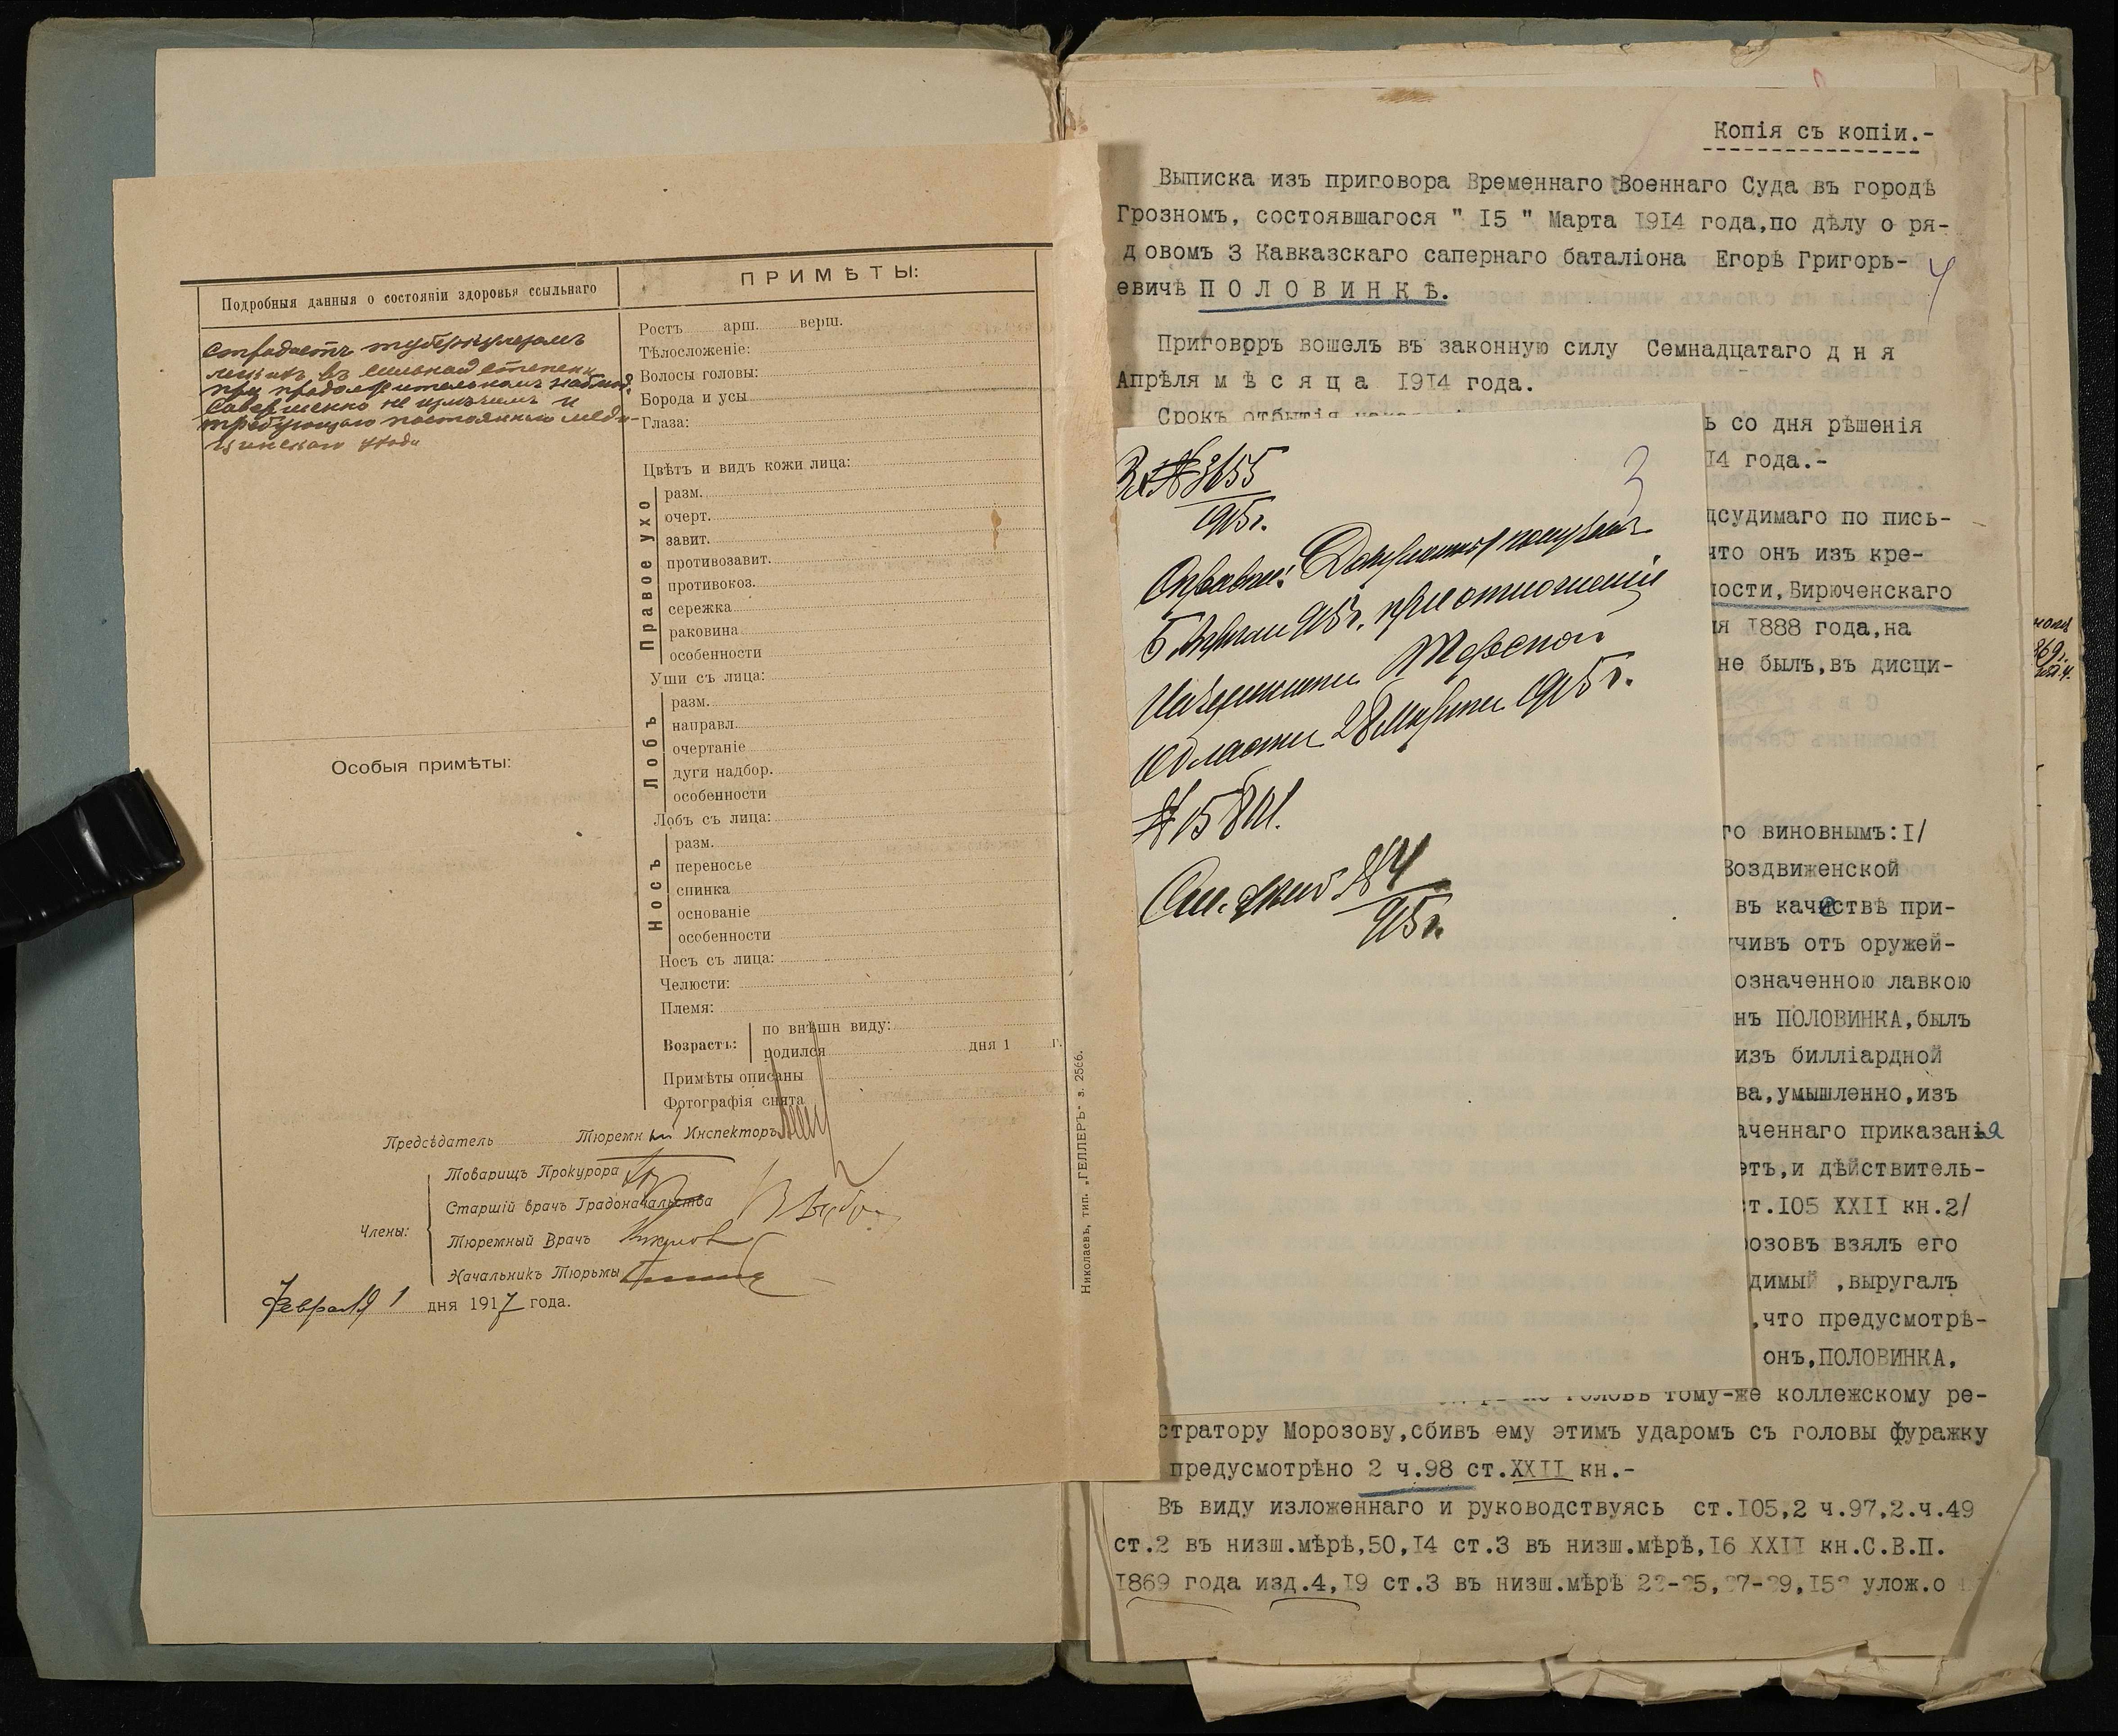 Подробныя данныя о состоянiи здоровья ссыльнаго
страдаетъ туберкулезомъ
легкихъ въ сильной степени
при продолжительномъ наблюд.
совершенно не излѣчимъ и
требующаго постояннаго меди-
цинскаго ухода
Особыя примѣты:
ПРИМѢТЫ:
Ростъ арш. верш.
Тѣлосложенiе:
Волосы головы:
Борода и усы
Глаза:
Цвѣтъ и видъ кожи лица:
Правое ухо
разм.
очерт.
завит.
противозавит.
противокоз.
сережка
раковина
особенности
Уши съ лица:
Лобъ
разм.
направл.
очертанiе
дуги надбор.
особенности
Лобъ съ лица:
Носъ
разм.
переносье
спинка
основанiе
особенности
Носъ съ лица:
Челюсти:
Племя:
Возрастъ:
по внѣшн виду:
родился дня 1 г.
Примѣты описаны
Фотографiя снята
Предсѣдатель Тюремный Инспекторъ
Члены:
Товарищъ Прокурора
Старшiй врачъ Градоначальства
Тюремный Врачъ
Начальникъ Тюрьмы
Февраля 1 дня 1917 года.
Николаевъ, тип. „ГЕЛЛЕРЪ“ з. 2566.
Копiя съ копiи.-
Выписка изъ приговора Временнаго Военнаго Суда въ городѣ
Грозномъ, состоявшагося " I5 " Марта I9I4 года,по дѣлу о ря-
довомъ 3 Кавказскаго сапернаго баталiона Егорѣ Григорь-
4
евичѣ П О Л О В И Н К Ѣ.
Приговоръ вошелъ въ законную силу Семнадцатаго д н я
Апрѣля м ѣ с я ц а I9I4 года.
Срокъ отбытiя
ь со дня рѣшенiя
I4 года.-
дсудимаго по пись-
что онъ изъ кре-
ности,Бирюченскаго
я I888 года,на
не былъ,въ дисци-
го виновнымъ:I/
Воздвиженской
въ качествѣ при-
учивъ отъ оружей-
означенною лавкою
нъ ПОЛОВИНКА,былъ
изъ биллiардной
ва,умышленно,изъ
аченнаго приказанiя
етъ,и дѣйствитель-
ст.I05 XXII кн.2/
розовъ взялъ его
димый ,выругалъ
,что предусмотрѣ-
онъ,ПОЛОВИНКА,
головѣ тому-же коллежскому ре-
стратору Морозову,сбивъ ему этимъ ударомъ съ головы фуражку
предусмотрѣно 2 ч.98 ст.XXII кн.-
Въ виду изложеннаго и руководствуясь ст.I05,2 ч.97,2.ч.49
ст.2 въ низш.мѣрѣ,50,I4 ст.3 въ низш.мѣрѣ,I6 XXII кн.С.В.П.
I869 года изд.4,I9 ст.3 въ низш.мѣрѣ 22-25,27-29,I52 улож.о
3
№ 3655
1915 г.
Справка: Документы получены
5 Апрѣля 915 г. при отношенiи
Начальника Терской
области 28 Марта 1915 г.
№ 15841.
915 г.